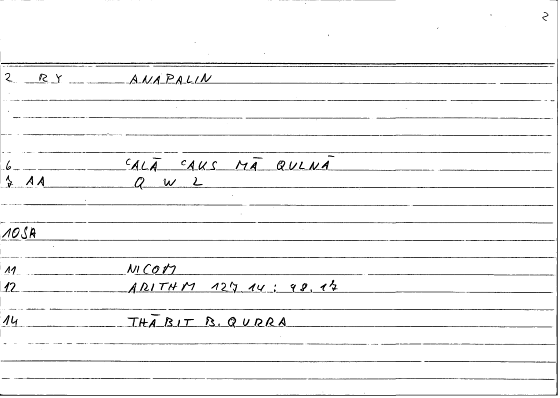 2
2 RY ANAPALIN
6 ᶜALĀ ᶜAKS MĀ QULNĀ
7 AA Q W L
10 SA
11 NICOM
12 ARITHM 127 14 : 98.17
14 THĀBIT B. QURRA